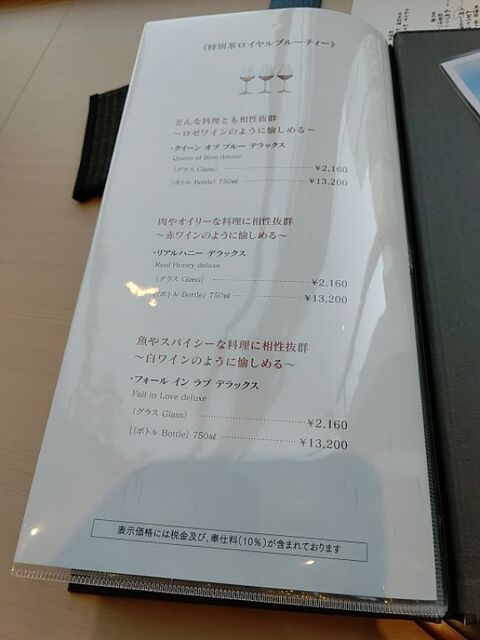 《特別茶ロイヤルブルーティー》
どんな料理とも相性抜群
～ロゼワインのように愉しめる～
・クイーン オブ ブルー デラックス
Queen of Blue deluxe
(グラス Glass) ¥2,160
(ボトル Bottle) 750㎖ ¥13,200
肉やオイリーな料理に相性抜群
～赤ワインのように愉しめる～
・リアルハニー デラックス
Real Honey deluxe
(グラス Glass) ¥2,160
((ボトル Bottle) 750㎖ ¥13,200
魚やスパイシーな料理に相性抜群
～白ワインのように愉しめる～
・フォール イン ラブ デラックス
Fall in Love deluxe
(グラス Glass) ¥2,160
((ボトル Bottle) 750㎖ ¥13,200
表示価格には税金及び、奉仕料(10%)が含まれております